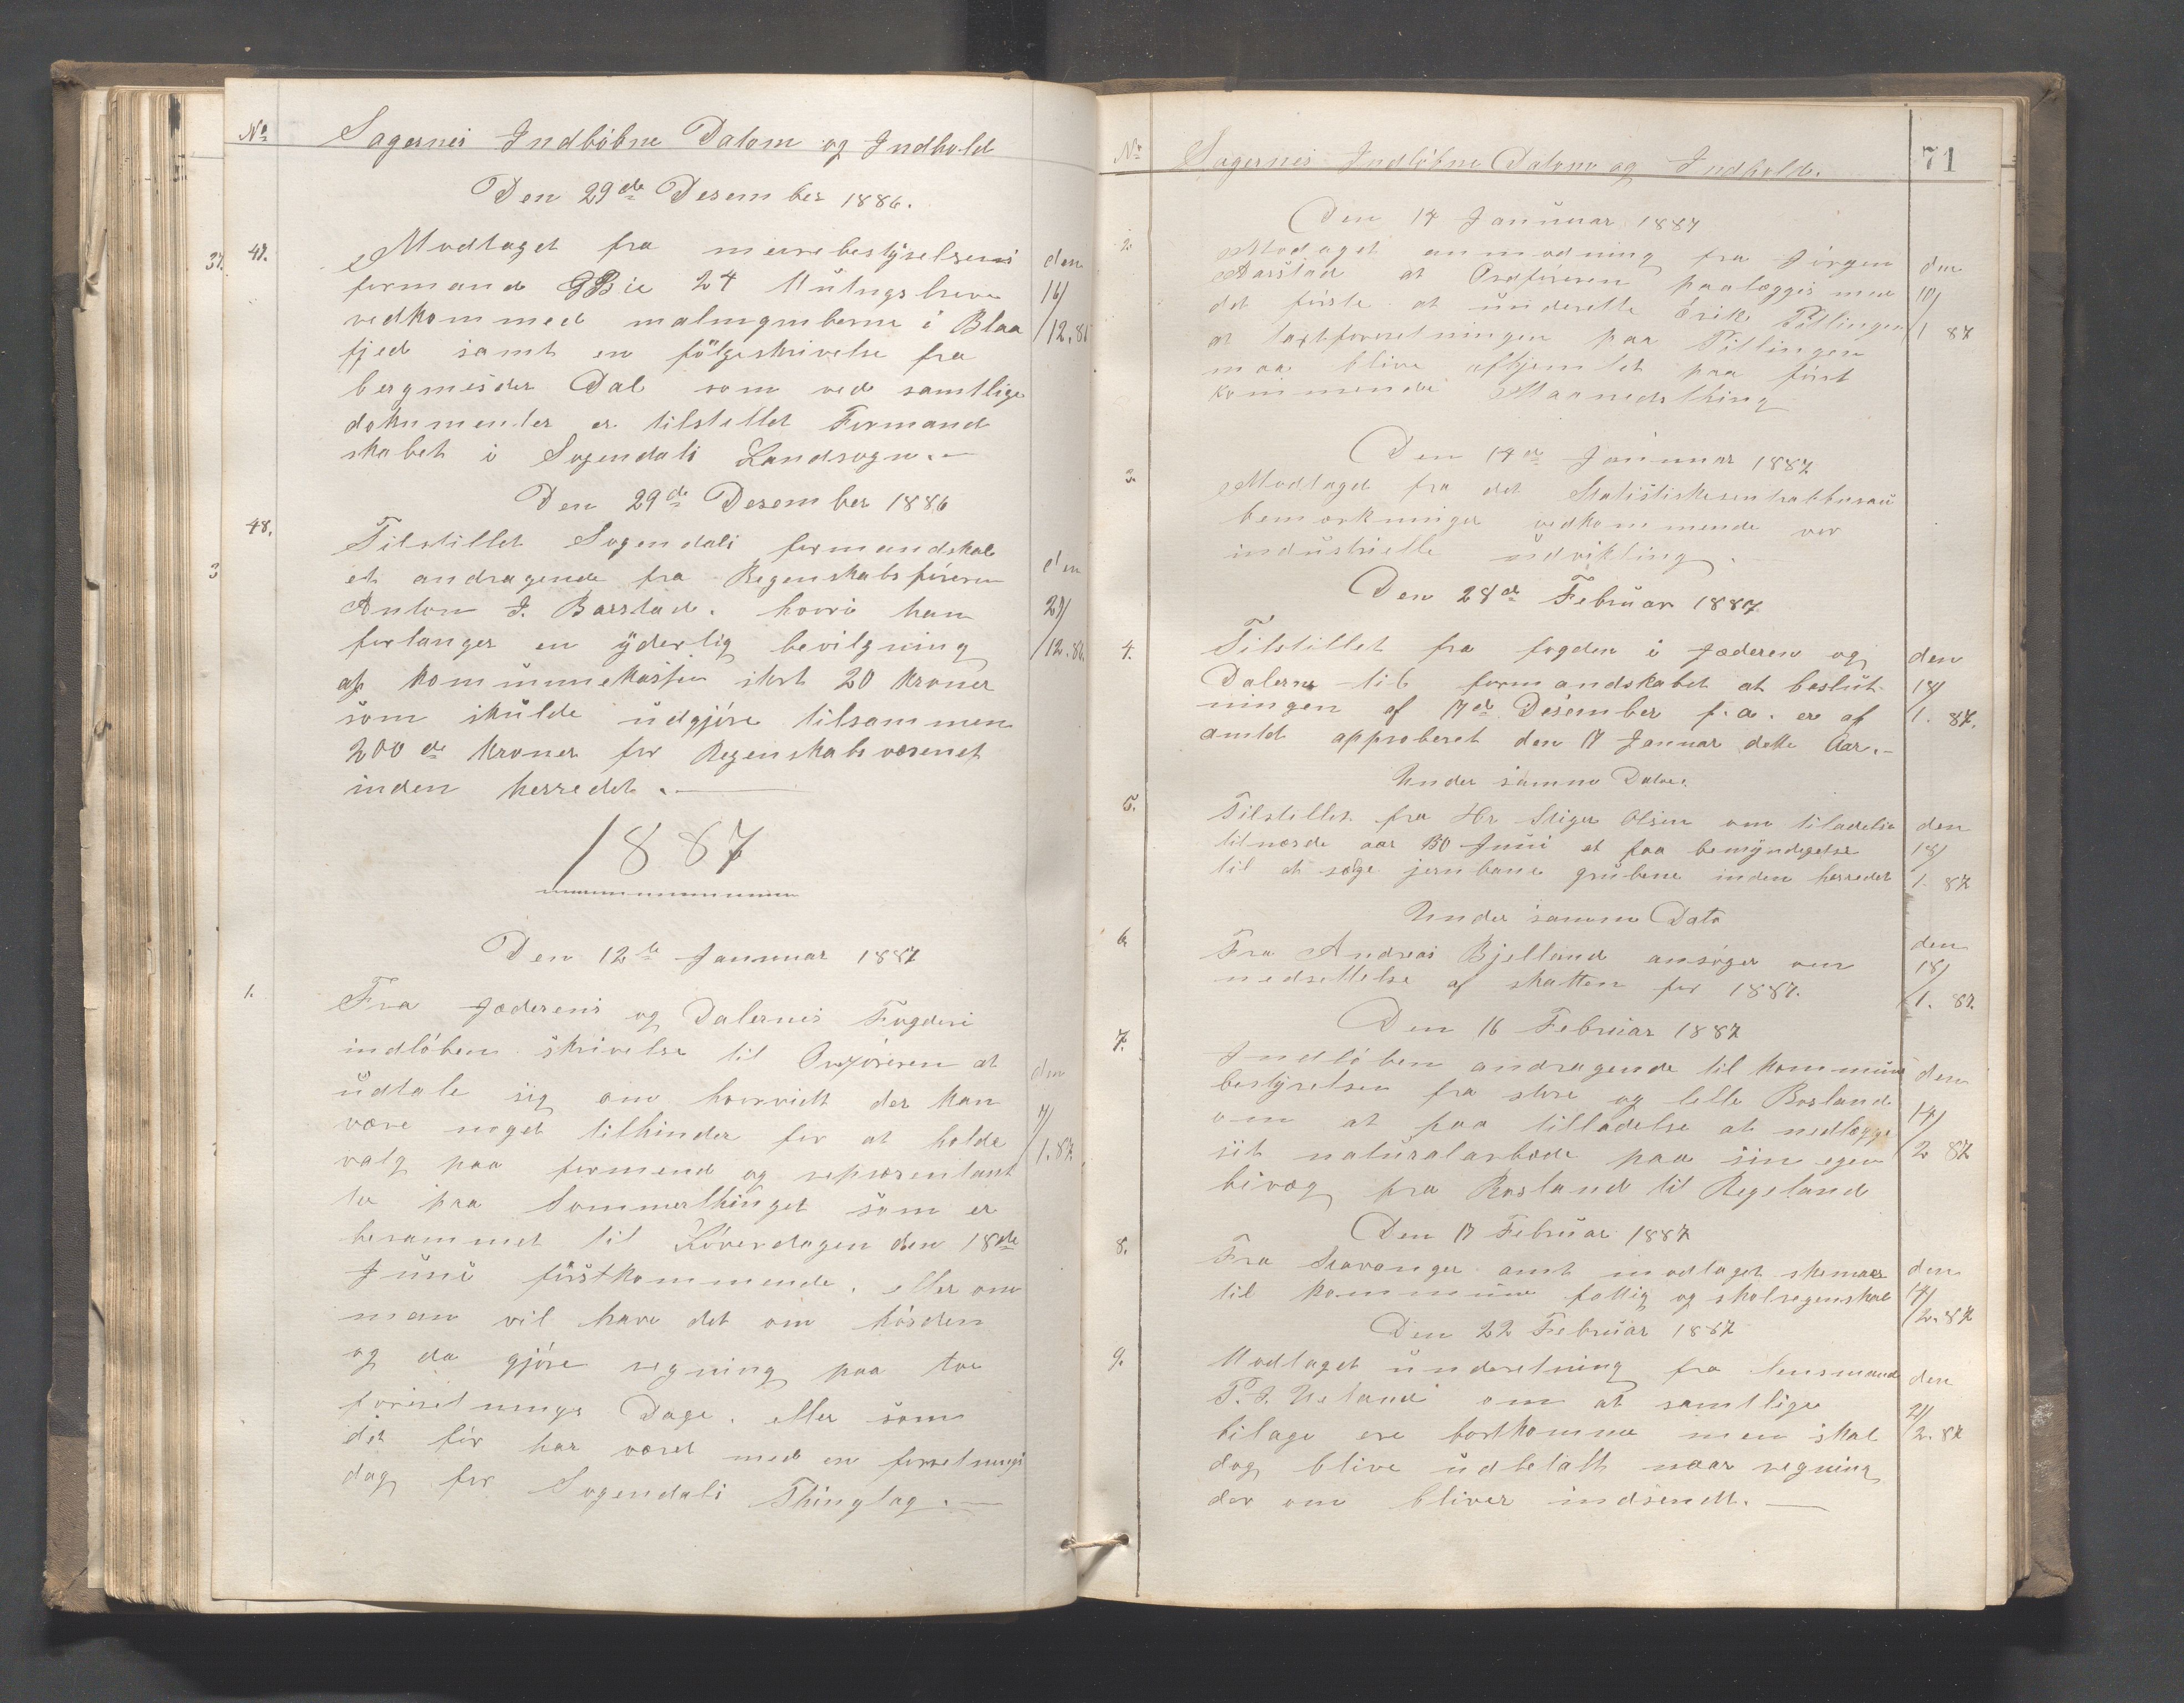 No Sagernes Indløbne Datom og Indhold
Den 29de Desember 1886.
47. Modtaget fra
formand GBie 24 Mutngsbreve
vedkommed malmgruberne i Blaa
fjed samt en følgeskrivelse fra
bergmester Dal som ved samtlige
dokumenter er tilstillet Formand
skabet i Sogendals Landsogn.
den 16/12.86
Den 29de Desember 1886
48. Tilstillet Sogendals formandskab
et andragende fra Regenskabsføreren
Anton J. Barstad. hvori han
forlanger en yderlig bevilgning
af kommunekassen stort 20 kroner
som skulde udgjøre tilsammen
200de kroner for Regenskabsvæsenet
inden herredet.
den 29/12.86.
1887
Den 12te Januuar 1887
1. Fra Jæderens og Dalernes Fogderi
indløben skrivelse til Orføreren at
udtale sig om hvorvidt der kan
være noget tilhinder for at holde
valg paa formend og repræsentant
ter paa Sommerthinget som er
berammet til Løverdagen den 18de
Juni førstkommende. eller om
man vil have det om høsden
og da gjøre regning paa to
foretnings Dage. eller som
det før har været med en forretnings
dag for Sogendals Thinglag.
den 7/1.87.
71
No Sagernes Indløbne Datom og Indhold.
Den 14 Januuar 1887
2. Modaget anmodning fra Jørgen
Aarstad at Ordføreren paalægges med
det første at underette Erik Pitlingen
at taxtforretningen paa Pitlingen
maa blive afhjemlet paa først
kommende Maanedsthing
den 10/1 87
Den 14de Januuar 1887
3. Modtaget fra det Statistikesentralbureau
bemærkninger vedkommende vor
industrielle udvikling.
Den 28de Februar 1887
4. Tilstillet fra fogden i Jæderen og
Dalerne til formandskabet at beslut
ningen af 17de Desember f.a. er af
amtd approberet den 17 Januar dette Aar.
den 18/1. 87.
Under samme Dato.
5. Tilstillet fra Hr Stiger Olsen om tiladelse
tilnæsde aar 30 Juni at faa bemyndegelse
til at søge jernbane grubene inden herredet
den 18/1. 87
Under samme Dato
6. Fra Andreas Bjelland ansøger om
nedsettelse af skatten for 1887.
den 18/1. 87.
Den 16 Februar 1887
7. Indløben andragende til kommune
bestyrelsen fra store og lelle Rosland
om at faa tilladelse at nedlægge
sit naturalarbede paa sin egen
bivæg fra Rosland til Regeland
den 14/2 87
Den 17 Februar 1887
8. Fra Stavanger amt modtaget skemaer
til kommune fattig og skolregenskab
den 14/2.87
Den 22 Februar 1887
9. Modtaget underetning fra lensmand
P. J. Ueland om at samtlige
bilage ere bortkomne men skal
dog blive udbetalt naar regning
der om bliver indsendt.
den 21/2.87